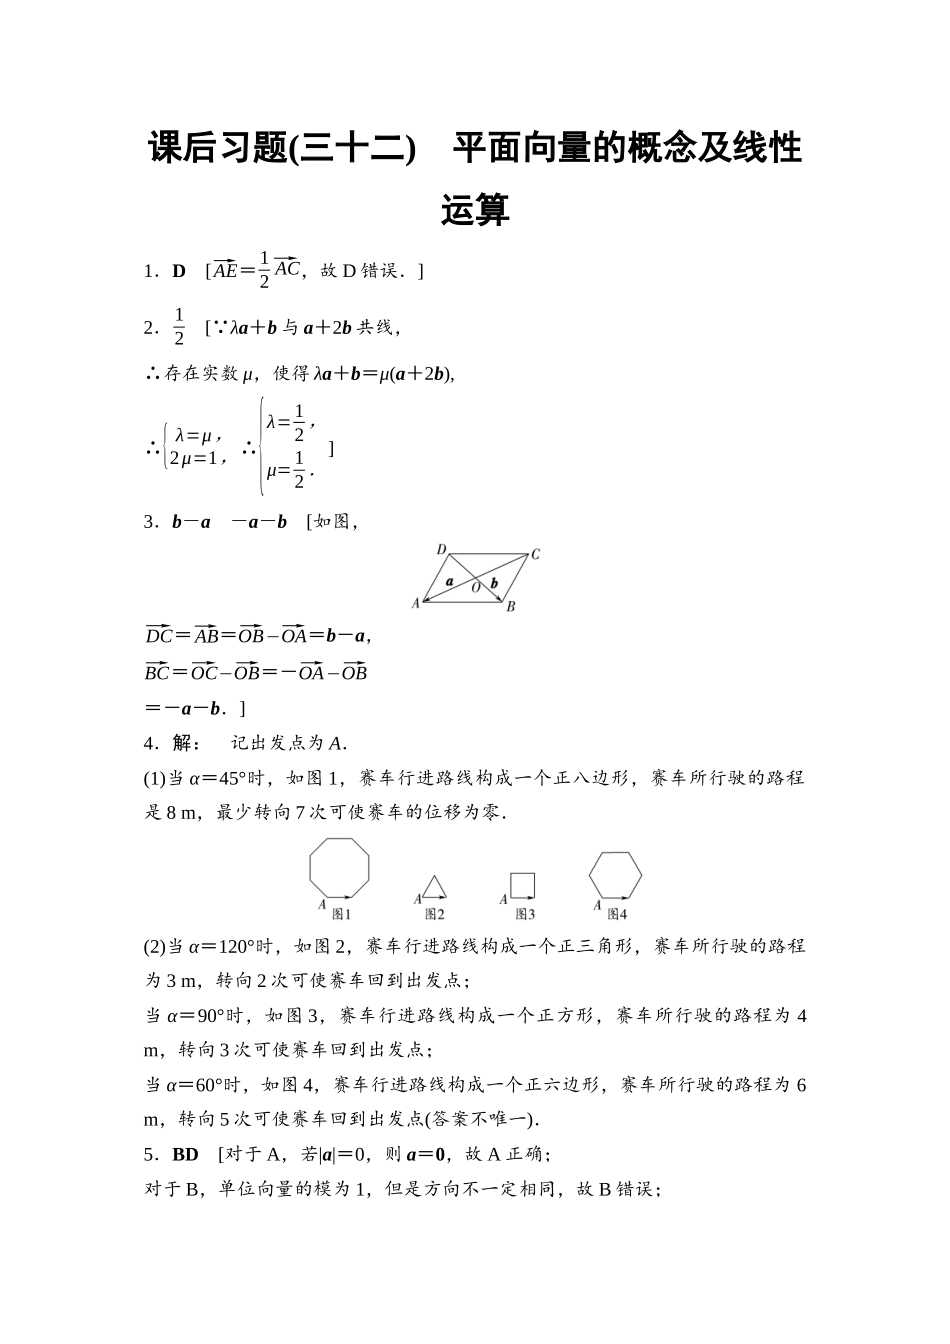 课后习题(三十二)　平面向量的概念及线性
运算
1．D　[AE→＝1/2 AC→，故 D 错误．]
2．1/2　[∵λa＋b 与 a＋2b 共线，
∴存在实数 μ，使得 λa＋b＝μ(a＋2b),
∴{λ=μ，2μ=1， ∴{λ=1/2， μ=1/2． ]
3．b－a　－a－b　[如图，
D C a O b A B
DC→＝AB→＝OB→－OA→＝b－a，
BC→＝OC→－OB→＝－OA→－OB→
＝－a－b．]
4．解：　记出发点为 A．
(1)当 α＝45°时，如图 1，赛车行进路线构成一个正八边形，赛车所行驶的路程
是 8 m，最少转向 7 次可使赛车的位移为零．
A A A A
图1 图2 图3 图4
(2)当 α＝120°时，如图 2，赛车行进路线构成一个正三角形，赛车所行驶的路程
为 3 m，转向 2 次可使赛车回到出发点；
当 α＝90°时，如图 3，赛车行进路线构成一个正方形，赛车所行驶的路程为 4
m，转向 3 次可使赛车回到出发点；
当 α＝60°时，如图 4，赛车行进路线构成一个正六边形，赛车所行驶的路程为 6
m，转向 5 次可使赛车回到出发点(答案不唯一)．
5．BD　[对于 A，若|a|＝0，则 a＝0，故 A 正确；
对于 B，单位向量的模为 1，但是方向不一定相同，故 B 错误；